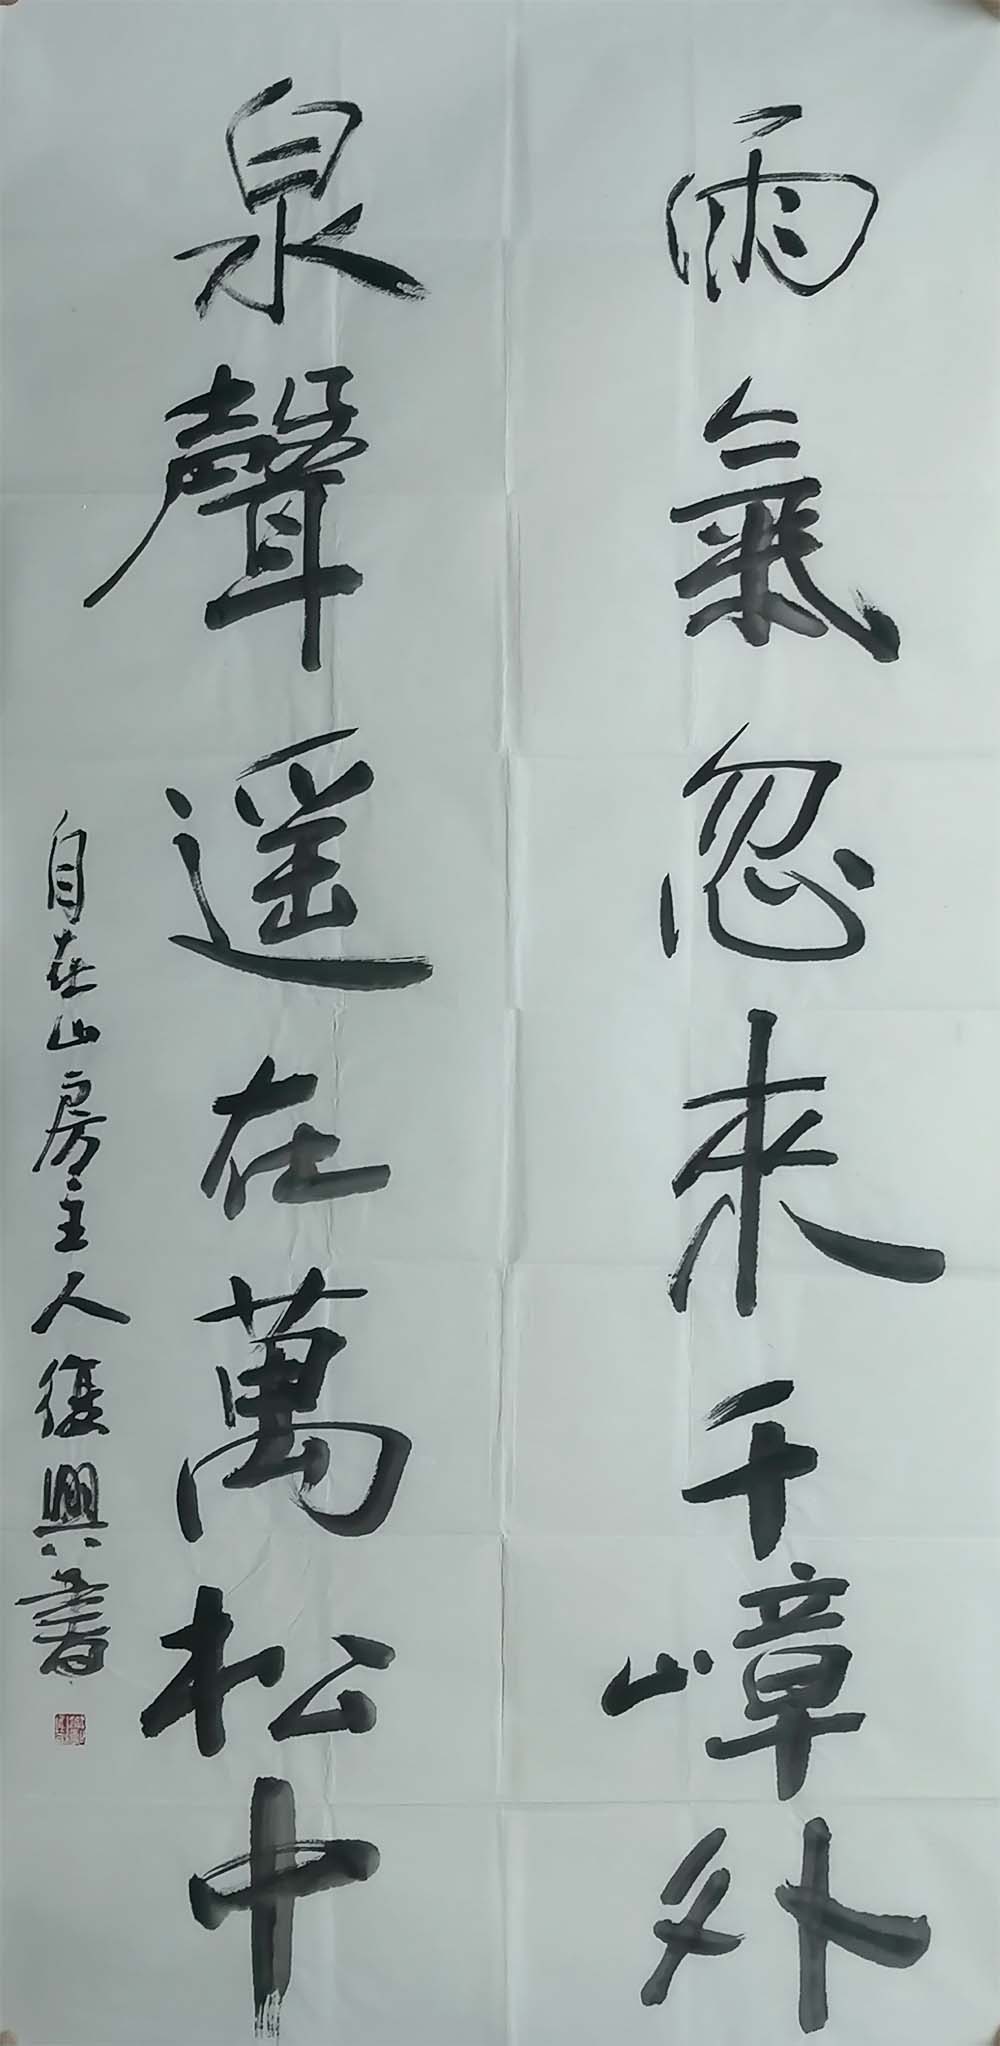 雨氣忽來千嶂外
泉聲遥在萬松中
自在山房主人復興書